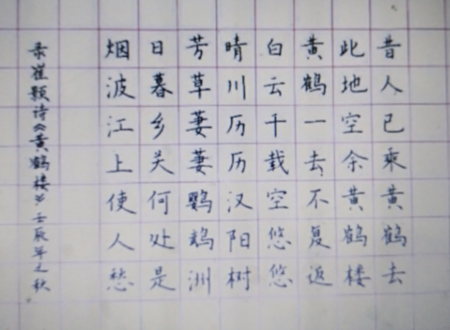 昔人已乘黄鹤去
此地空余黄鹤楼
黄鹤一去不复返
白云千载空悠悠
晴川历历汉阳树
芳草萋萋鹦鹉洲
日暮乡关何处是
烟波江上使人愁
录崔颢诗《黄鹤楼》壬辰年之秋